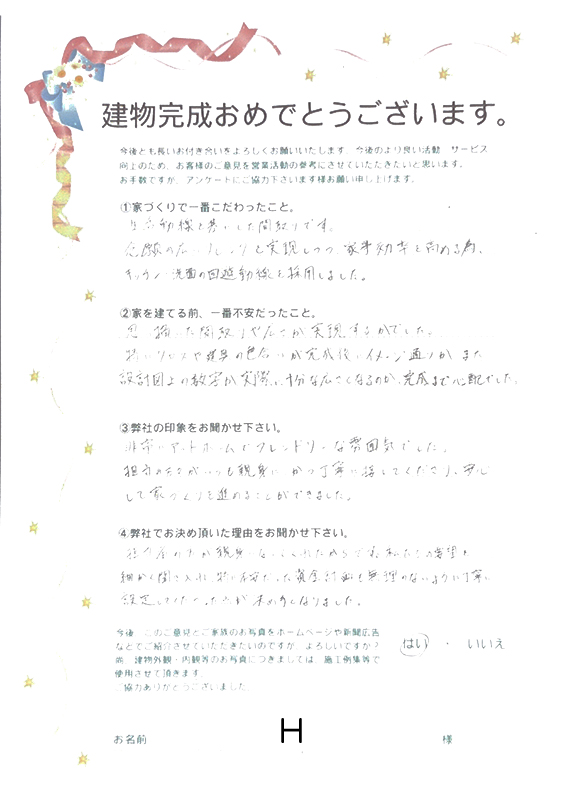 建物完成おめでとうございます。
今後とも長いお付き合いをよろしくお願いいたします。今後のより良い活動 サービス
向上のため、お客様のご意見を営業活動の参考にさせていただきたいと思います。
お手数ですが、アンケートにご協力下さいます様お願い申し上げます。
①家づくりで一番こだわったこと。
動線を した間取りです。
念願の広いリビングを実現しつつ、家事効率を高める為、
キッチン 洗面の回遊動線を採用しました。
②家を建てる前、一番不安だったこと。
思い描いた間取りや広さが実現するかでした。
建具の色合いが完成後にイメージ通りか、また
設計図上の数字が実際に十分な広さとなるのか、完成まで心配でした。
③弊社の印象をお聞かせ下さい。
非常にアットホームでフレンドリーな雰囲気でした。
担当の方がいつも親身に、かつ丁寧に接してくださり、安心
して家づくりを進めることができました。
④弊社でお決め頂いた理由をお聞かせ下さい。
担当の方が親身になってくれたからです。私たちの要望を
細かく聞き入れ、特に不安だった資金計画も無理のないように丁寧に
設定して たのが決め手となりました。
今後、このご意見とご家族のお写真をホームページや新聞広告
などでご紹介させていただきたいのですが、よろしいですか？
尚、建物外観・内観等のお写真につきましては、施工例集等で
使用させて頂きます。
ご協力ありがとうございました。
はい ・ いいえ
お名前 H 様